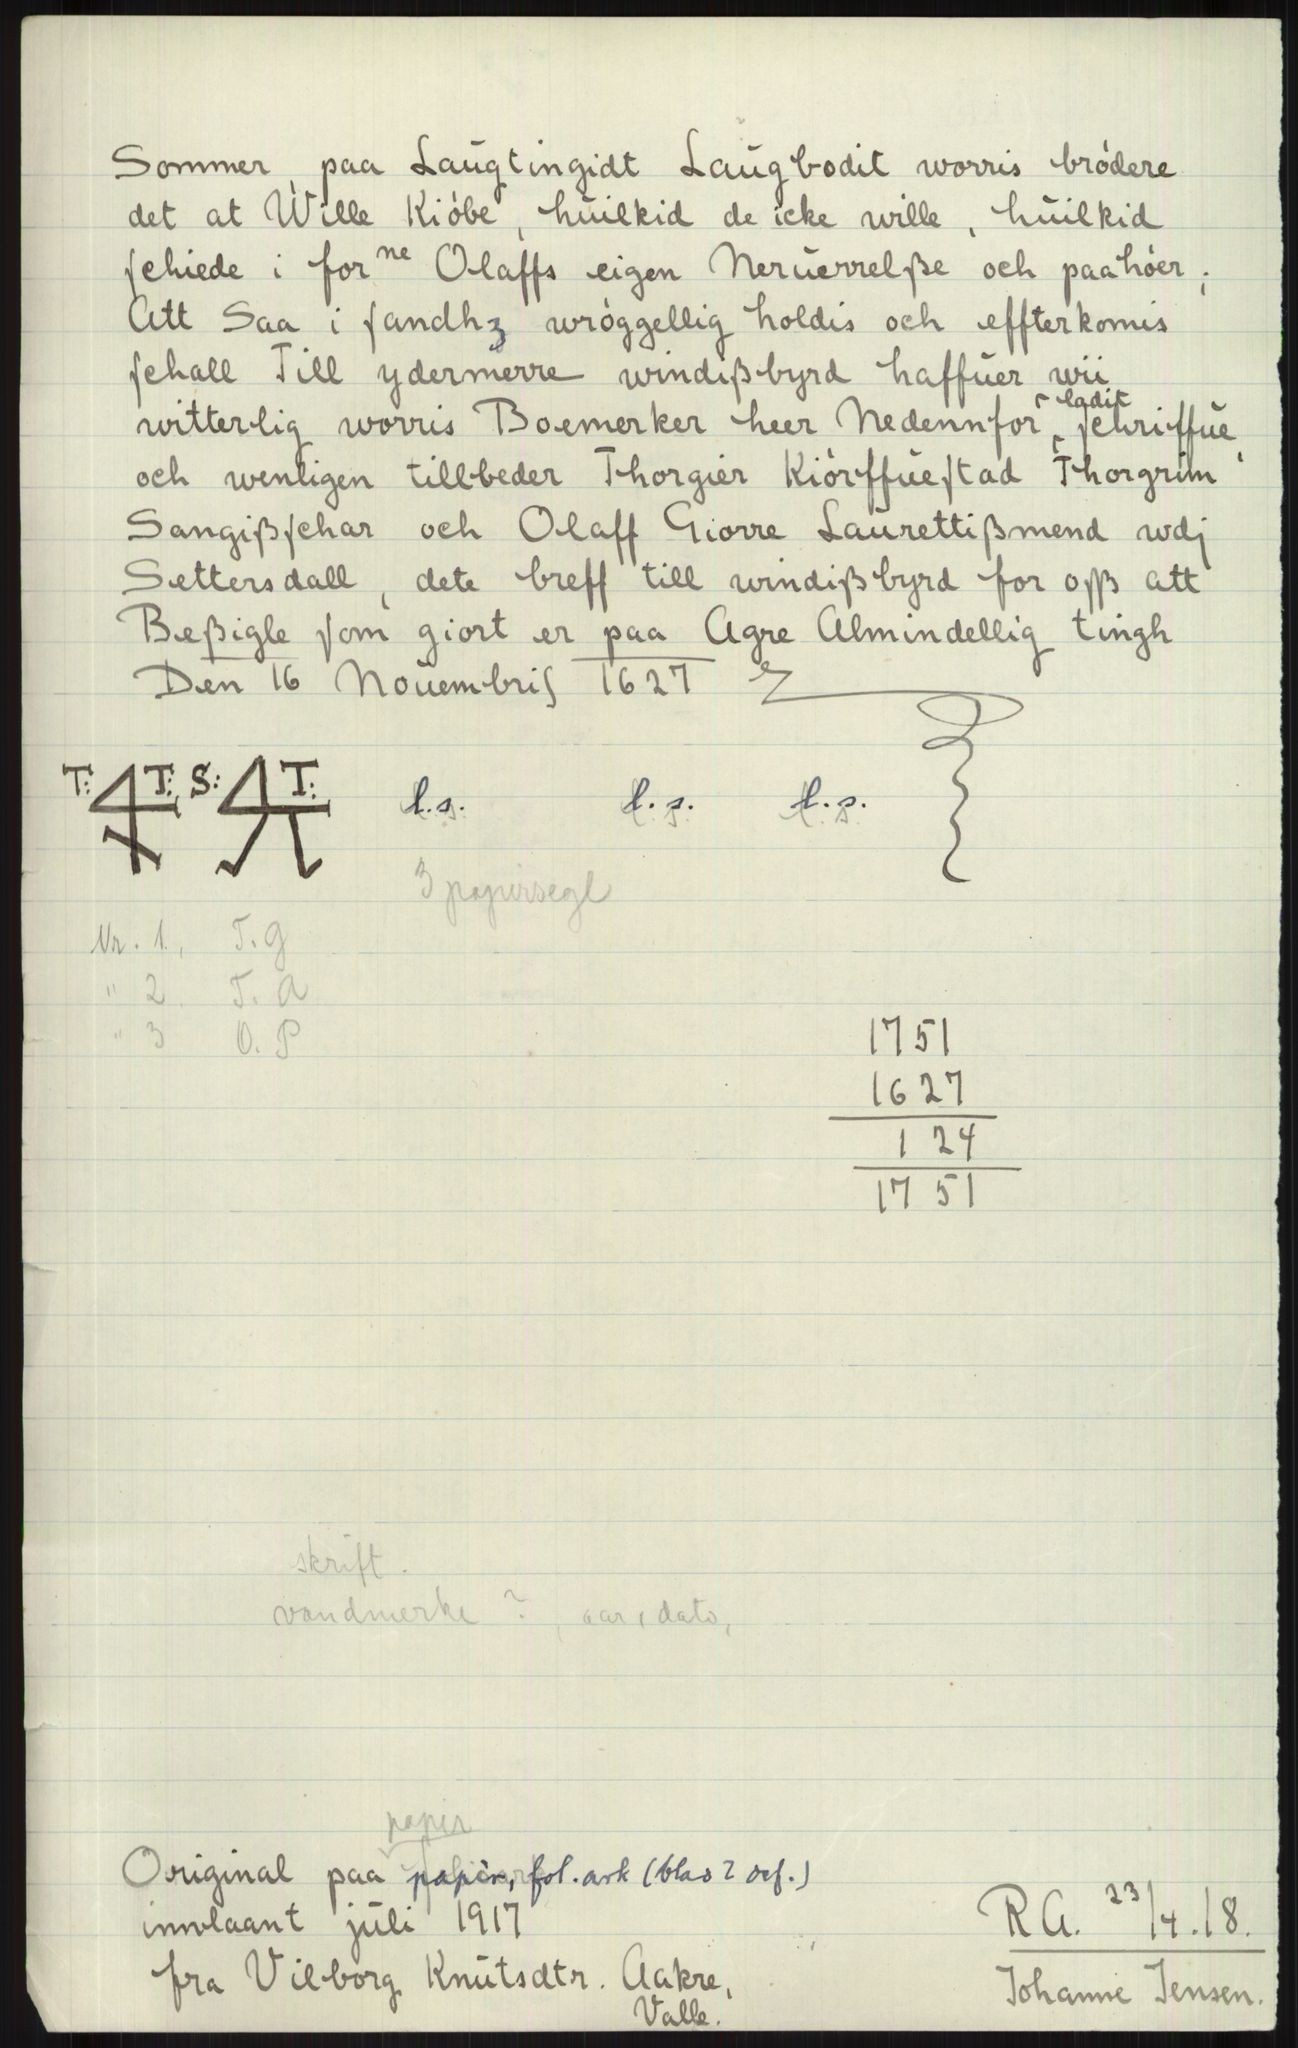 Sommer, paa Laŭgtingidt Laŭgbodit worris bródere
det at Wille Kióbe, hŭilkid de icke wille, hŭilkid
ſchiede i for ne Olaffs eigen Nerŭerrelße och paahóer,
Att Saa i ſandhʒ wróggellig holdis och effterkomis
ſchall Till ydermerre windißbyrd haffŭer wii
witterlig worris Boemerker heer Nedennfor ladit ſchriffŭe,
och wenligen tillbeder Thorgier Kiórffŭeſtad Thorgrim
Sangißſchar och Olaff Giorre Laŭrettißmend wdj
Settersdall, dete breff till windißbyrd for oſß att
Beßigle ſom giort er paa Agre Almindellig tingh
Den 16 Noŭembriſ 1627
T: T: S: T: l.s. l.s. l.s.
3 papirsegl
Nr. 1. T.G
" 2. T. A
" 3 O. P
1751
1627
124
1751
skrift.
vandmerke ? aar, dato,
papir
Original paa papir, fol. ark (blad 2 def.)
innlaant jŭli 1917
fra Vilborg Knŭtsdtr. Aakre,
Valle.
R A. 23/4.18.
Johanne Jensen.